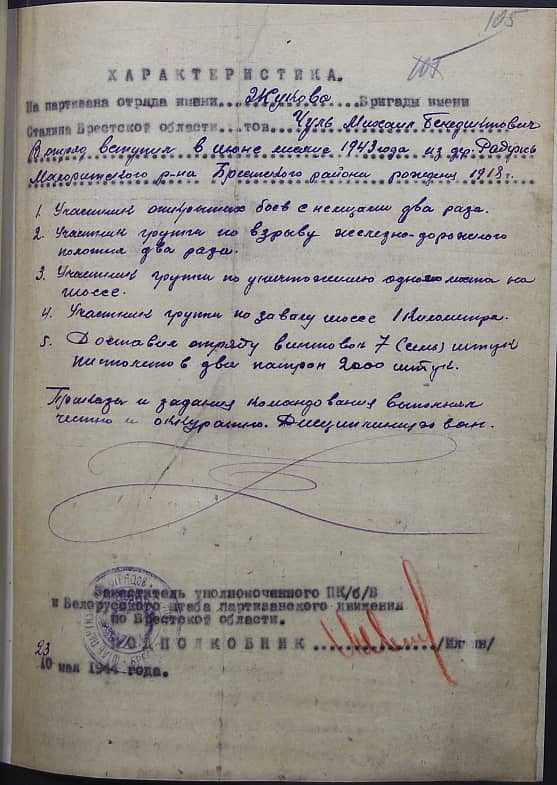 105
105
ХАРАКТЕРИСТИКА.
На партизана отряда имени....Жукова.....Бригады имени
Сталина Брестской области...тов. Чуль Михаил Бенедиктович
В отряд вступил в июне месяце 1943 года из дер. Радунь
Малоритского р-на Брестского района рождения 1918 г.
1. Участник открытых боев с немцами два раза.
2. Участник группы по взрыву железно-дорожного
полотна два раза.
3. Участник группы по уничтожению одного моста на
шоссе.
4. Участник группы по завалу шоссе 1 километра.
5. Доставил отряду винтовок 7 (семь) штук
пистолетов два патрон 2000 штук.
Приказы и задания командования выполнял
честно и аккуратно. Дисциплинирован.
Заместитель уполномоченного ЦК/б/Б
и Белорусского штаба партизанского движения
по Брестской области.
ПОДПОЛКОВНИК ............/Ильин/
23
10 мая 1944 года.